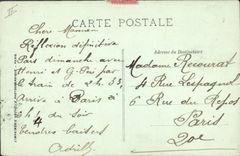 CARTE POSTALE
Adresse du Destinataire
Chère Mamie
Réflexion définitive
Pars dimanche avec
Henri et G. Par
le train de 2h.33.
Arrive à Paris à
4 h du soir
tendres baisers
Madame Recourat
4 Rue Lespagnol
6 Rue du Repos
Paris
20e